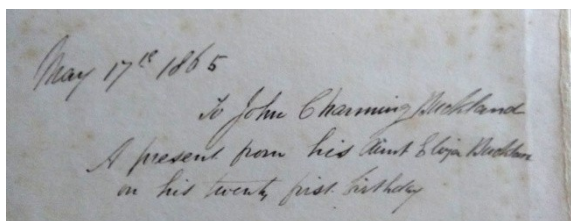 May 17th 1865
To John Channing Buckland
A present from his Aunt Eliza Buckland
on his twenty first birthday